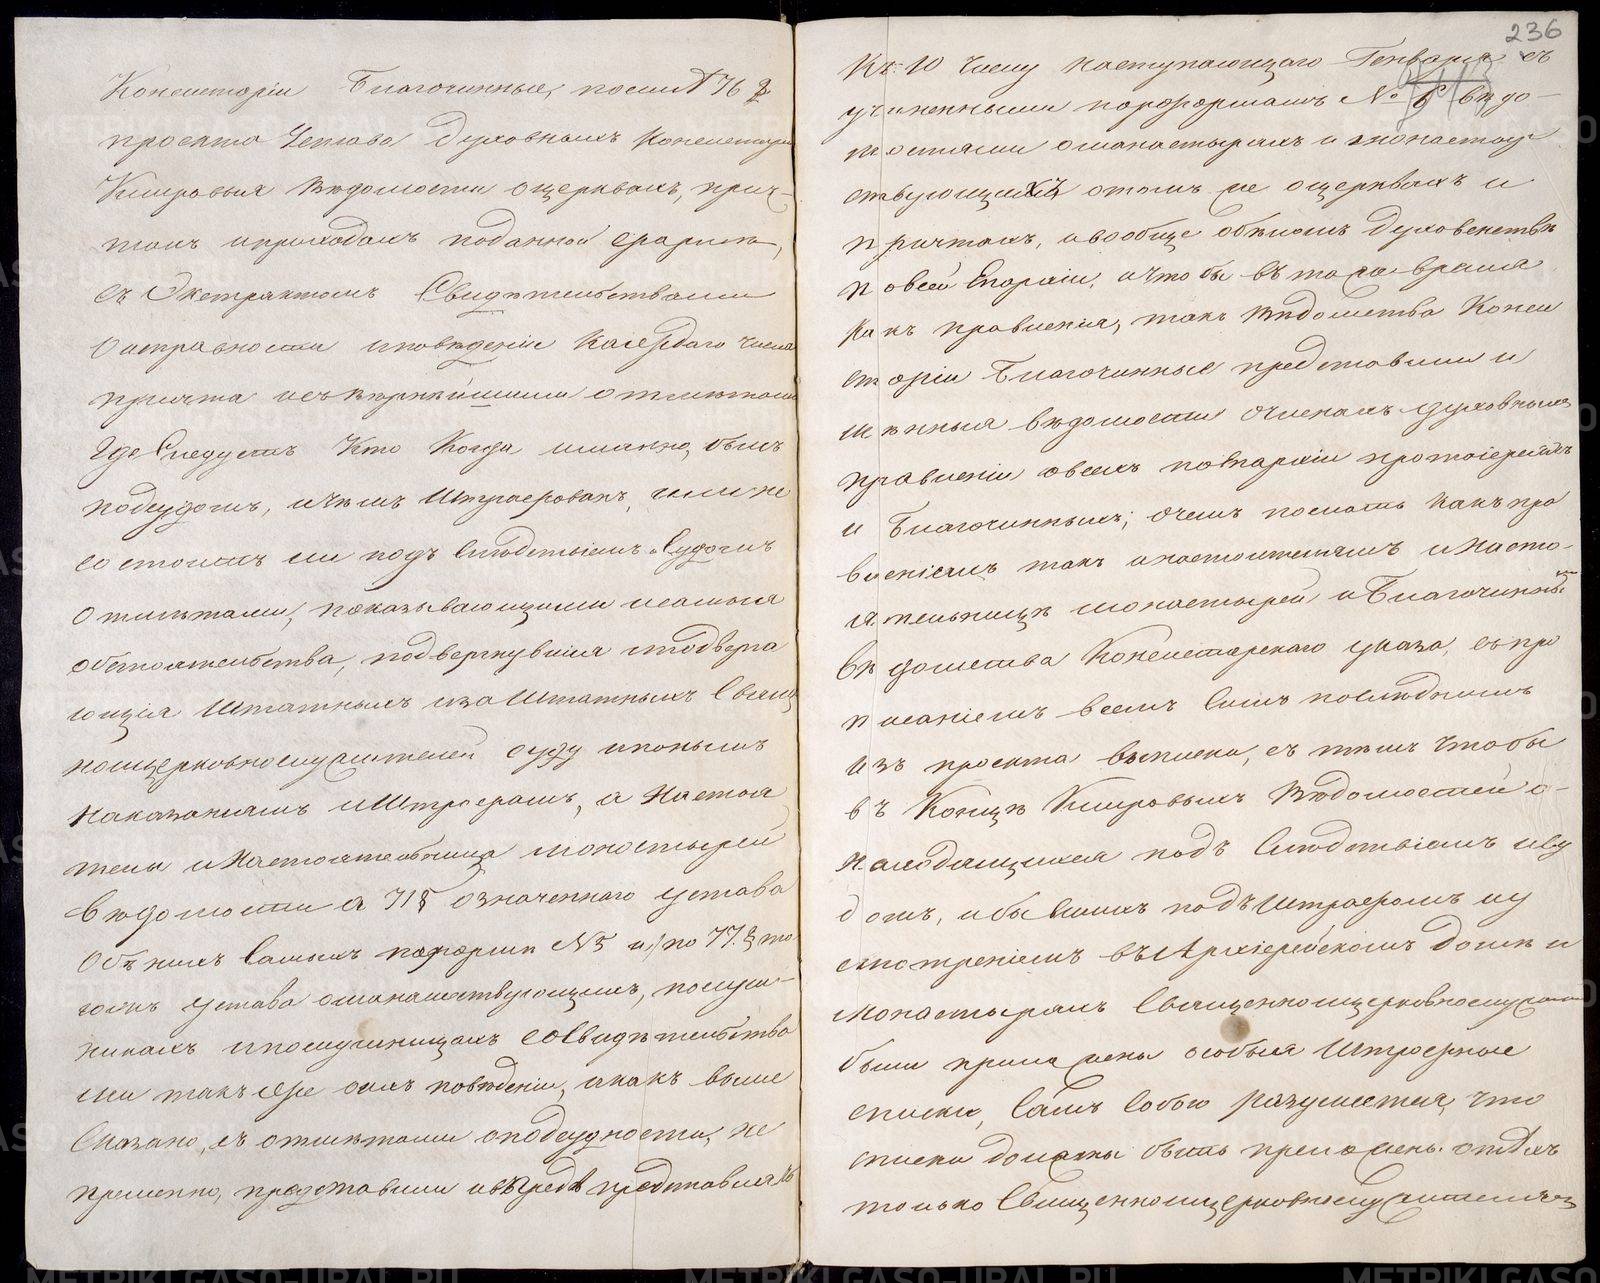 Консисторіи Благочинные, по силѣ 76 §
проекта Устава Духовныхъ Консисторій
Клировыя Вѣдомости о церквахъ, прич-
тахъ и приходахъ по данной формѣ,
съ Экстрактомъ Свидѣтельствами
о исправности и поведеніи каждаго члена
причта и съ вѣрнѣйшими отмѣтками
Где Слѣдуетъ Кто Когда именно, былъ
подсудомъ, и чѣмъ Штрафованъ, или не
состоитъ ли подъ Слѣдствіемъ и Судомъ
Отмѣтками, показывающими и самыя
обстоятельства, подвергнувшія и подверга
ющія Штатныхъ и за Штатныхъ Свящ
ноцерковнослужителей суду и по нымъ
Наказаніямъ и Штрафамъ, а Настоя
тели и Настоятельницы монастырей
Вѣдомости а 71 § означеннаго устава
Объ нихъ Самыхъ по форми № 5 и, по 77. § то
гожъ устава о манашествующихъ, послуш-
никахъ и послушницахъ со Свидѣтельства
ми такъ же о ихъ поведеніи, и какъ выше
Сказано, съ отмѣтками о подсудности, не
пременно, представили и впредь представляли
236
Къ 10 Числу наступающаго Генваря съ
учиненными по формамъ № 6 вѣдо-
мостями о манастыряхъ и монастоу
ствующихъ о томъ же о церквахъ и
причтахъ, и вообще о бѣломъ Духовенствѣ
по всей Епархіи, и что бы въ то же время
какъ правленія, такъ Вѣдомства Конси
сторіи Благочинные представили и
мѣнныя вѣдомости о членахъ духовныхъ
правленій о всехъ по епархіи протоіереяхъ
и Благочинныхъ; о чемъ послать какъ пра
вленіямъ такъ и настоятелямъ и Насто-
ятельницѣ монастырей и Благочиннымъ
вѣдомства Консисторскаго указа, съ про
писаніемъ всемъ Симъ последнимъ
изъ проекта выписки, съ тѣмъ чтобы
въ Концѣ Клировыхъ Вѣдомостей о-
находящихся подъ Слѣдствіемъ и Су
домъ, и бывшихъ подъ Штрафомъ и у
смотреніемъ въ Архіерейскомъ Домѣ и
Монастыряхъ Священноцерковнослужите
были приложены особыя Штрафные
списки, Самъ Собою разумѣется, что
списки должны быть приложены о тѣхъ
только Священноцерковнослужителяхъ